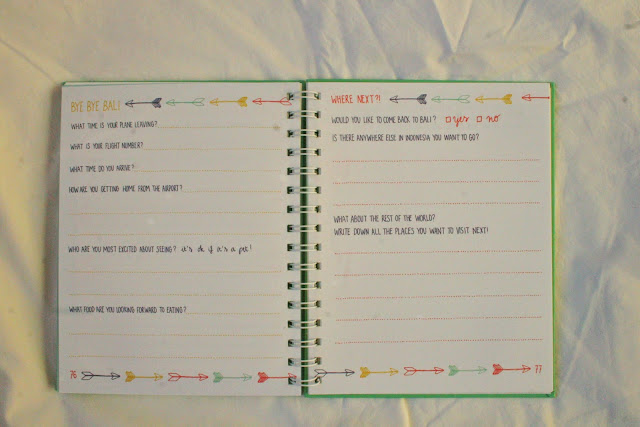 BYE BYE BALI
WHAT TIME IS YOUR PLANE LEAVING?
WHAT IS YOUR FLIGHT NUMBER?
WHAT TIME DO YOU ARRIVE?
HOW ARE YOU GETTING HOME FROM THE AIRPORT?
WHO ARE YOU MOST EXCITED ABOUT SEEING? it's ok if it's a pet!
WHAT FOOD ARE YOU LOOKING FORWARD TO EATING?
76
WHERE NEXT?!
WOULD YOU LIKE TO COME BACK TO BALI? yes no
IS THERE ANYWHERE ELSE IN INDONESIA YOU WANT TO GO?
WHAT ABOUT THE REST OF THE WORLD?
WRITE DOWN ALL THE PLACES YOU WANT TO VISIT NEXT!
77